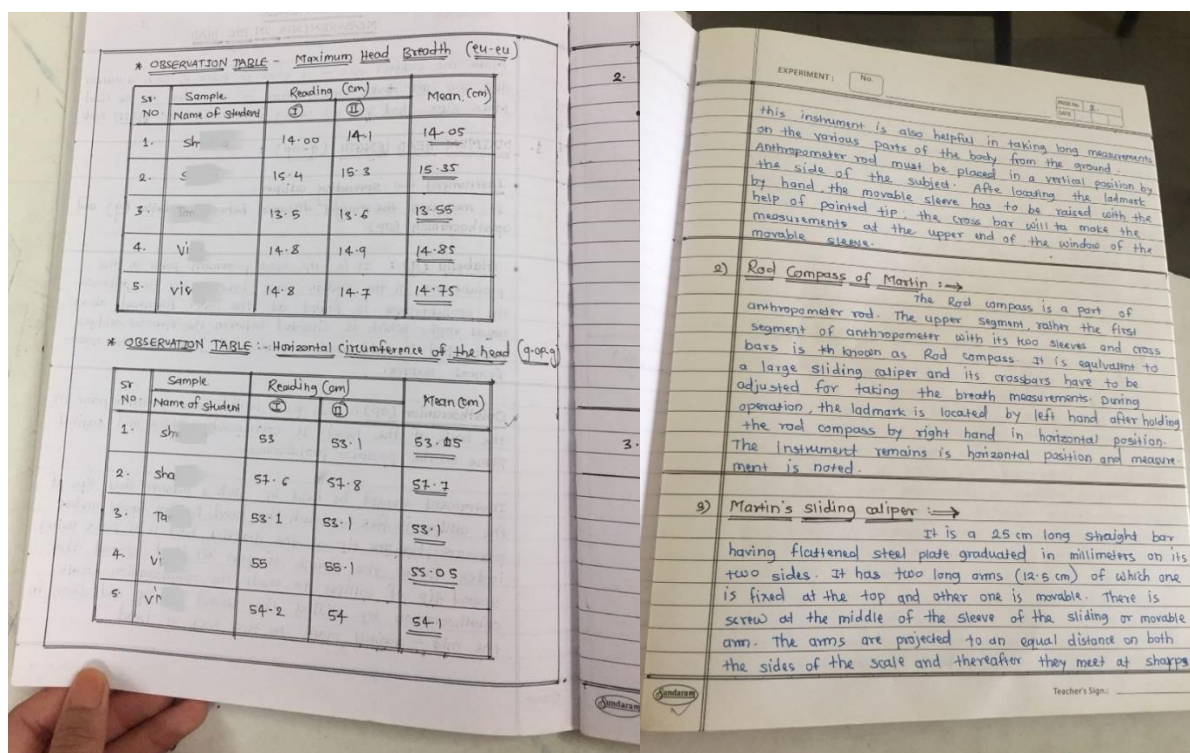 * OBSERVATION TABLE - Maximum Head Breadth (eu-eu)
Sr. NO Sample Name of student Reading (cm) I II Mean (cm)
1. Sh 14.00 14.1 14.05
2. S 15.4 15.3 15.35
3. 13.5 13.6 13.55
4. Vi 14.8 14.9 14.85
5. Viv 14.8 14.7 14.75
* OBSERVATION TABLE :- Horizontal Circumference of the head (g-op-g)
Sr NO Sample Name of student Reading (cm) I II Mean (cm)
1. Sh 53 53.1 53.05
2. Sha 57.6 57.8 57.7
3. Ta 53.1 53.1 53.1
4. Vi 55 55.1 55.05
5. 54.2 54 54.1
2.
3.
Sundaram
EXPERIMENT : No.
PAGE No. 2
DATE
this instrument is also helpful in taking long measurements
on the various parts of the body from the ground.
Anthropometer rod must be placed in a vertical position by
the side of the subject. Afte locating the ladmark
by hand, the movable sleeve has to be raised with the
help of pointed tip. the cross bar will ta make the
measurements at the upper end of the window of the
movable sleeve.
2) Rod Compass of Martin :→
The Rod compass is a part of
anthropometer rod. The upper segment, rather the first
segment of anthropometer with its two sleeves and cross
bars is kn known as Rod compass. It is equlvalent to
a large sliding caliper and its crossbars have to be
adjusted for taking the breath measurements. During
operation, the ladmark is located by left hand after holding
the rod compass by right hand in horizontal position.
The instrument remains is horizontal position and measure-
ment is noted.
3) Martin's sliding caliper :→
It is a 25 cm long straight bar
having flattened steel plate graduated in millimeters on its
two sides. It has two long arms (12.5 cm) of which one
is fixed at the top and other one is movable. There is
screw at the middle of the sleeve of the sliding or movable
arm. The arms are projected to an equal distance on both
the sides of the scale and thereafter they meet at sharps
Sundaram
Teacher's Sign.: